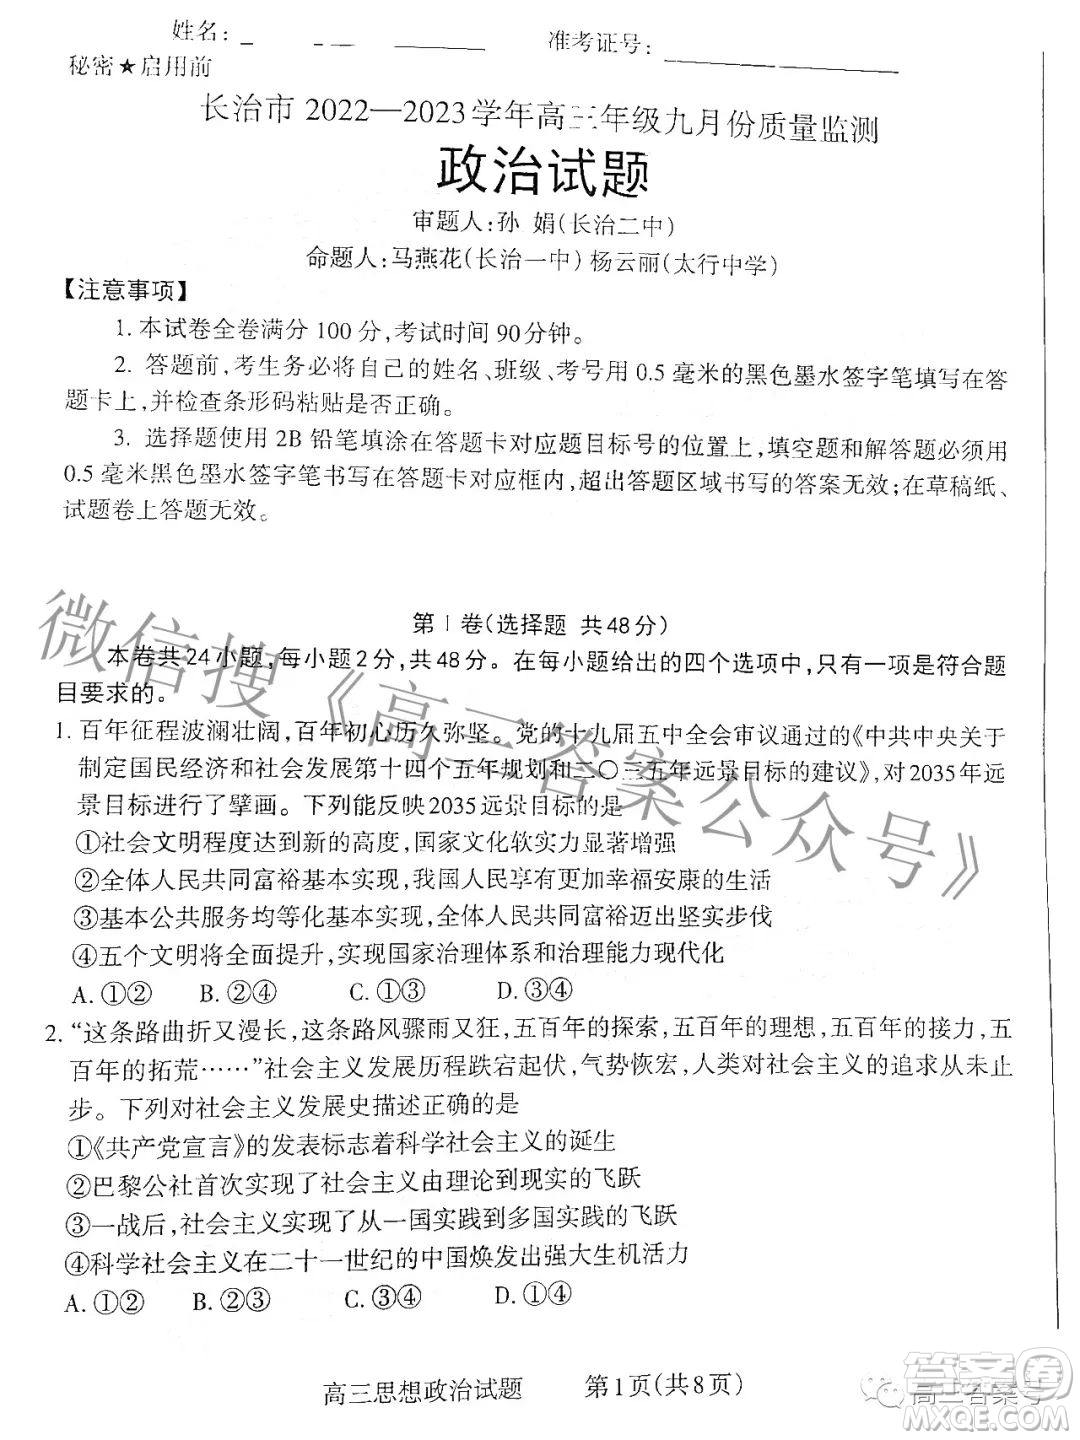 姓名:
准考证号:
秘密★启用前
长治市 2022—2023学年高三年级九月份质量监测
政治试题
审题人:孙 娟(长治二中)
命题人:马燕花(长治一中) 杨云丽(太行中学)
【注意事项】
1.本试卷全卷满分 100 分,考试时间 90分钟。
2. 答题前,考生务必将自己的姓名、班级、考号用 0.5 毫米的黑色墨水签字笔填写在答
题卡上,并检查条形码粘贴是否正确。
3. 选择题使用 2B 铅笔填涂在答题卡对应题目标号的位置上,填空题和解答题必须用
0.5 毫米黑色墨水签字笔书写在答题卡对应框内,超出答题区域书写的答案无效;在草稿纸、
试题卷上答题无效。
第Ⅰ卷(选择题 共48分)
本卷共24小题,每小题2分,共48分。在每小题给出的四个选项中,只有一项是符合题
目要求的。
1. 百年征程波澜壮阔,百年初心历久弥坚。党的十九届五中全会审议通过的《中共中央关于
制定国民经济和社会发展第十四个五年规划和二〇三五年远景目标的建议》,对2035年远
景目标进行了擘画。下列能反映2035远景目标的是
①社会文明程度达到新的高度,国家文化软实力显著增强
②全体人民共同富裕基本实现,我国人民享有更加幸福安康的生活
③基本公共服务均等化基本实现,全体人民共同富裕迈出坚实步伐
④五个文明将全面提升,实现国家治理体系和治理能力现代化
A. ①② B. ②④ C. ①③ D. ③④
2. “这条路曲折又漫长,这条路风骤雨又狂,五百年的探索,五百年的理想,五百年的接力,五
百年的拓荒……”社会主义发展历程跌宕起伏,气势恢宏,人类对社会主义的追求从未止
步。下列对社会主义发展史描述正确的是
①《共产党宣言》的发表标志着科学社会主义的诞生
②巴黎公社首次实现了社会主义由理论到实践的飞跃
③一战后,社会主义实现了从一国实践到多国实践的飞跃
④科学社会主义在二十一世纪的中国焕发出强大生机活力
A. ①② B. ②③ C. ③④ D. ①④
高三思想政治试题 第1页(共8页)
微信搜《高三答案公众号》
高三答案号
答案圈
MXQE.COM